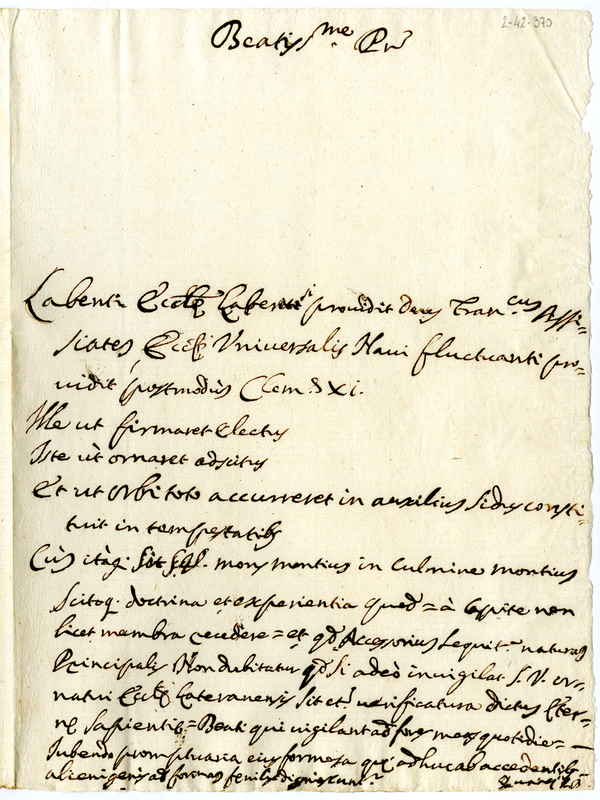 2-42-370
Beatiss.me Pr
Labenti Eccle Labenti providit Deus Fran.cus Assi=
siates, Eccle Universalis Navi fluctuanti pro=
vidit postmodum Clem.s XI.
Ille ut firmaret electus
Iste ut ornaret adscitus
Et ut orbi toto accurreret in auxilium sidus consti=
tuit in tempestatib
Cum itaq. sit mons montium in culmine montium
scitoq. doctrina et experientia quod = à Capite non
licet membra recedere = et qd Accessorium sequit.r naturam
Principalis Non dubitatur qd si adeò invigilat S. V. or=
natui Eccle Lateranensis sit et verificatura dictus Eter=
ne sapientie = Beati qui vigilant ad fores meas quotidie =
Iubendo promptuaria eius formosa qui adhuc ab accedentib
alienigenis ad formas